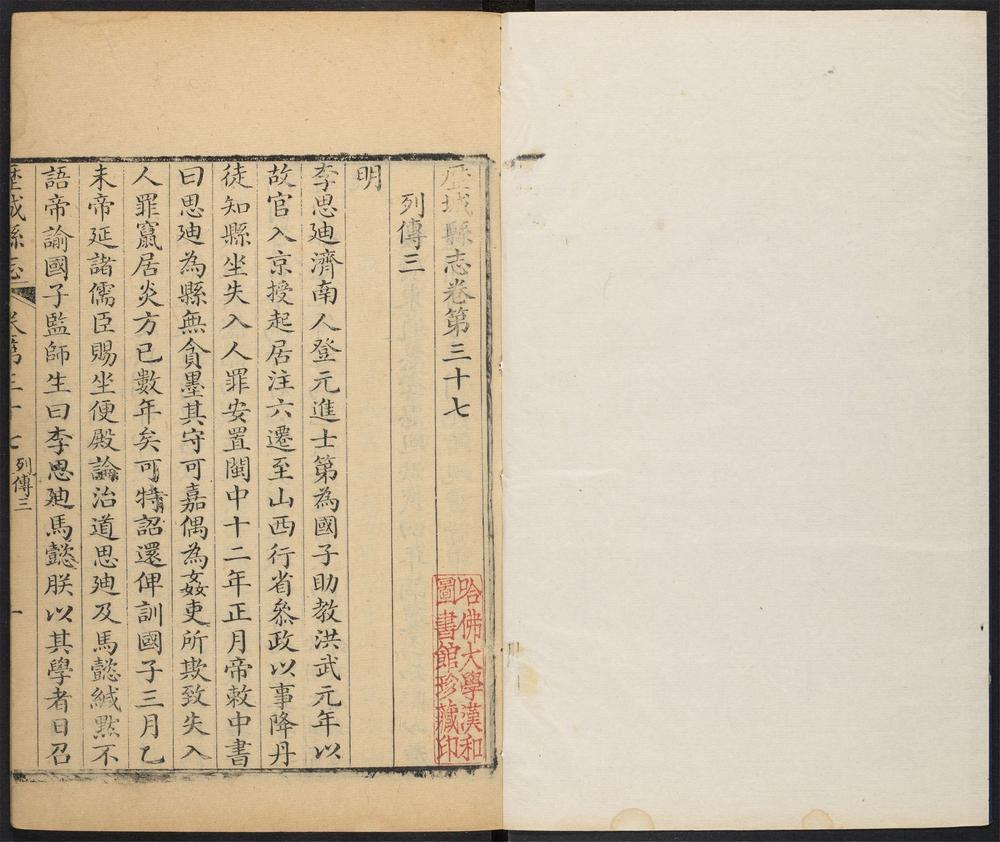 歷城縣志卷第三十七
列傳三
明
李思廸濟南人登元進士第為國子助教洪武元年以
故官入京授起居注六遷至山西行省叅政以事降丹
徒知縣坐失入人罪安置閩中十二年正月帝敕中書
曰思廸為縣無貪墨其守可嘉偶為姦吏所欺致失入
人罪竄居炎方已數年矣可特詔還俾訓國子三月乙
未帝延諸儒臣賜坐便殿論治道思廸及馬懿緘黙不
語帝諭國子監師生曰李思廸馬懿朕以其學者日召
歷城縣志
卷第三十七
列傳三
一
哈佛大學漢和
圖書館珍藏印